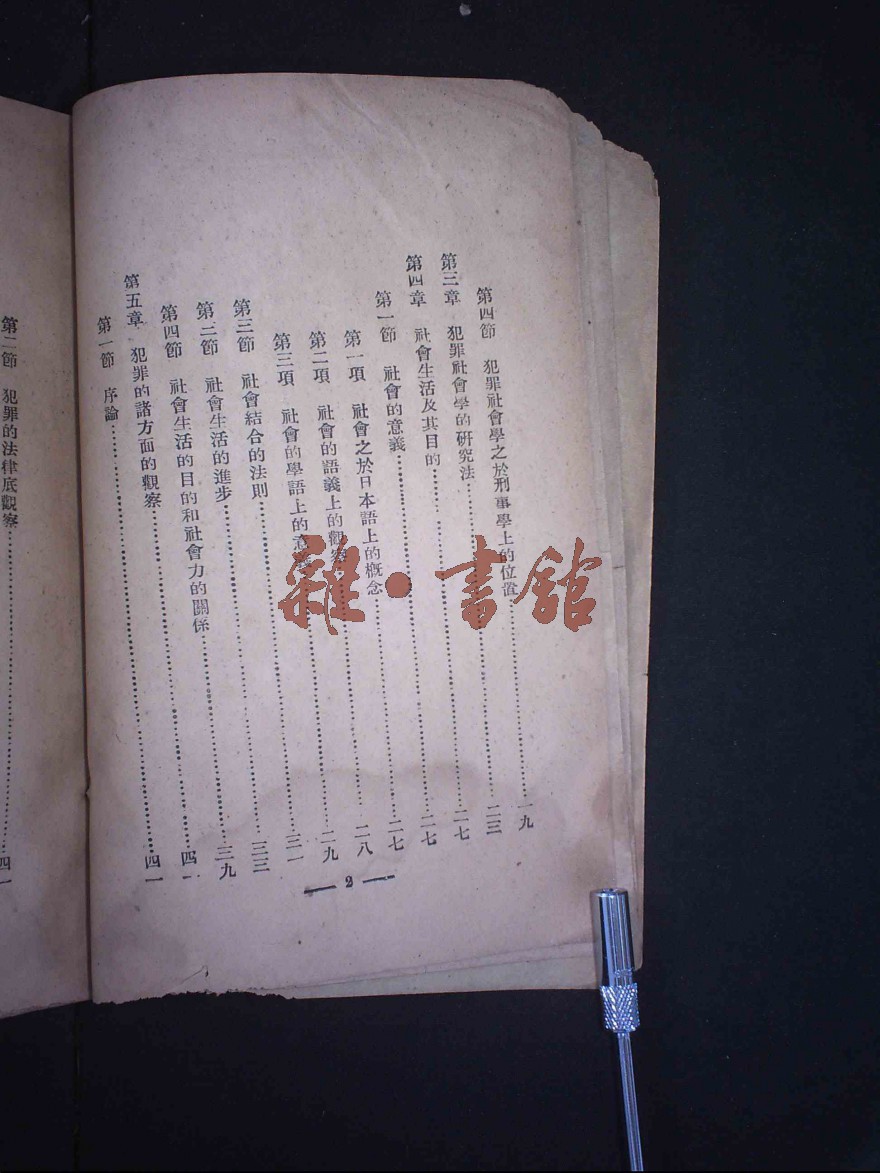 第四節 犯罪社會學之於刑事學上的位置……一九
第三章 犯罪社會學的研究法……二三
第四章 社會生活及其目的……二七
第一節 社會的意義……二七
第一項 社會之於日本語上的概念……二七
第二項 社會的語義上的觀察……二八
第三項 社會的學語上的意義……二九
第三節 社會結合的法則……三一
第三節 社會生活的進步……三三
第四節 社會生活的目的和社會力的關係……三九
第五章 犯罪的諸方面的觀察……四一
第一節 序論……四一
— 2 —
第二節 犯罪的法律底觀察……四一
雜·書館